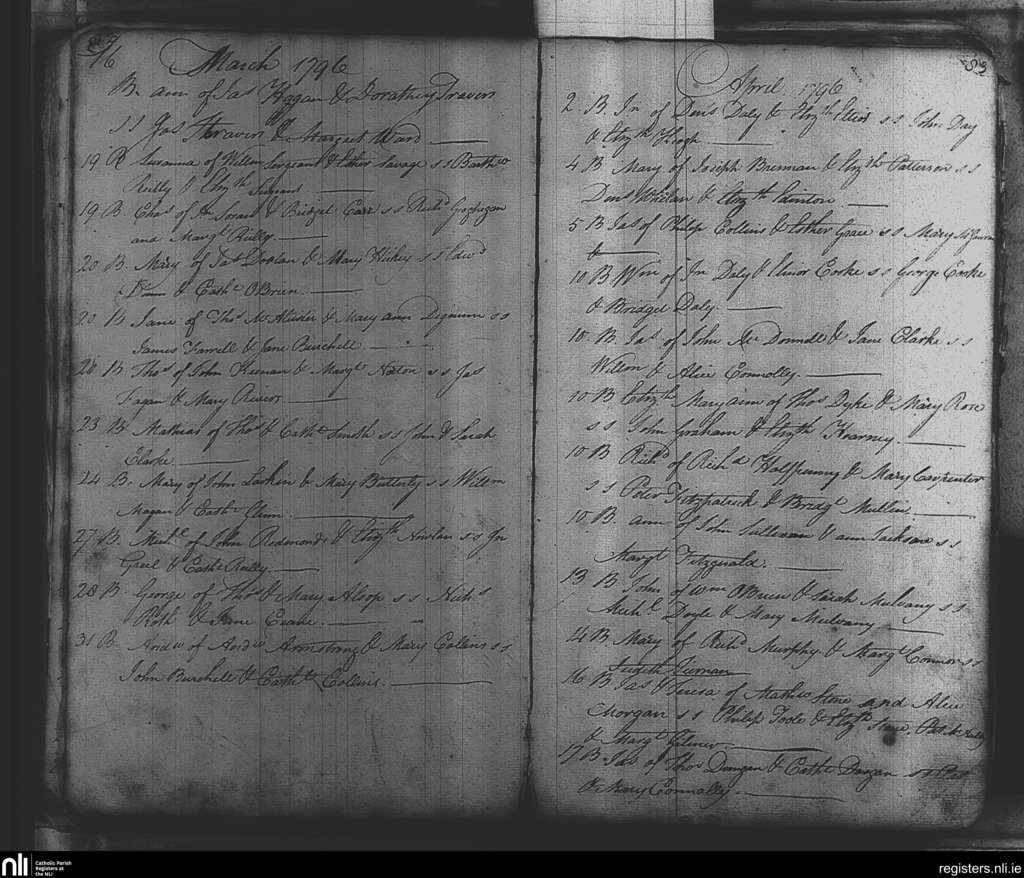 March 1796
16 B. ann of Jas Hagan & Dorathy Travers
ss Jas Travers & Margret Ward
19 B Susanna of Willm Sergeant & Esther Savage ss Barthw
Reilly & Elizth Sergeant
19 B. Chas of & Bridget Carr ss Richd Geoghegan
and Margt Reilly.
20 B. Mary of Jas Doolan & Mary Hickey ss Edwd
& Cathe OBrien.
20 B Jane of Thos McAllister & Mary ann Dignum ss
James Farrell & Jane Burchell.
20 B Thos of John Keenan & Margt Norton ss Jas
Fagan & Mary Rivers.
23 B. Mathias of Thos & Cathe Smith ss John & Sarah
Clarke.
24 B. Mary of John Larkin & Mary Butterly ss Willm
Magan & Cathe Glinn.
27 B. Michl of John Redmond & Elizth Nowlan ss Jn
& Cathe Reilly.
28 B. George of Thos & Mary Alsop ss Nichs
Roth & Jane Evans.
31 B. Andw of Andw Armstrong & Mary Collins ss
John Burchell & Cathe Collins.
83
April 1796
2 B Jn of Denis Daly & Elizth ss John Day
& Elizth Keogh.
4 B Mary of Joseph Brennan & Elizth Patterson ss
Denis Whelan & Elizth
5 B Jas of Philip Collins & Esther Grace ss Mary
&
10 B Wm of Jn Daly & Elinor Cooke ss George Cooke
& Bridget Daly.
10 B. Jas of John McDonnell & Jane Clarke ss
Willm & Alice Connolley.
10 B Elizth Mary ann of Thos Dyke & Mary Rose
ss John Graham & Elizth Kearney.
10 B Richd of Richd Halfpenny & Mary Carpenter
ss Peter Fitzpatrick & Bridgt Mullin.
10 B. ann of John Sullivan & ann Jackson ss
Margt Fitzgerald.
13 B John of Wm OBrien & Sarah Mulvany ss
Michl Doyle & Mary Mulvany
14 B. Mary of Richd Murphy & Margt Connor ss
Judith
16 B Jas & Teresa of Mathew Stone and Alice
Morgan ss Philip Toole & Elizth Stone, Pat
& Margt
17 B Jas of Thos Dungan & Cathe Dungan ss Pat
& Mary Connolley.
nli
Catholic Parish
Registers at
the NLI
registers.nli.ie